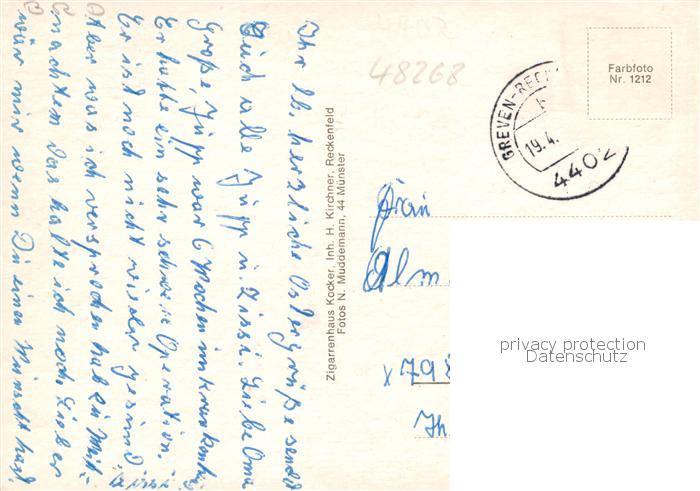 Ihr lb. herzliche Ostergrüße sendet
Euch alle Jupp u. Zissi. Liebe Oma
Große, Jupp war 6 Wochen im krankenh.
Er hatte ein sehr schwere Operation.
Er ist noch nicht wieder gesund
Aber was ich versprochen hab zu
nachten das halte ich noch. Lieber
wär mir wenn Du einen Wunsch hast
Zissi
Zigarrenhaus Kocker, Inh. H. Kirchner, Reckenfeld
Fotos N. Muddemann, 44 Münster
48268
GREVEN-RECK
19.4.
4402
Farbfoto
Nr. 1212
Frau
Alm
x 798
Ih
privacy protection
Datenschutz